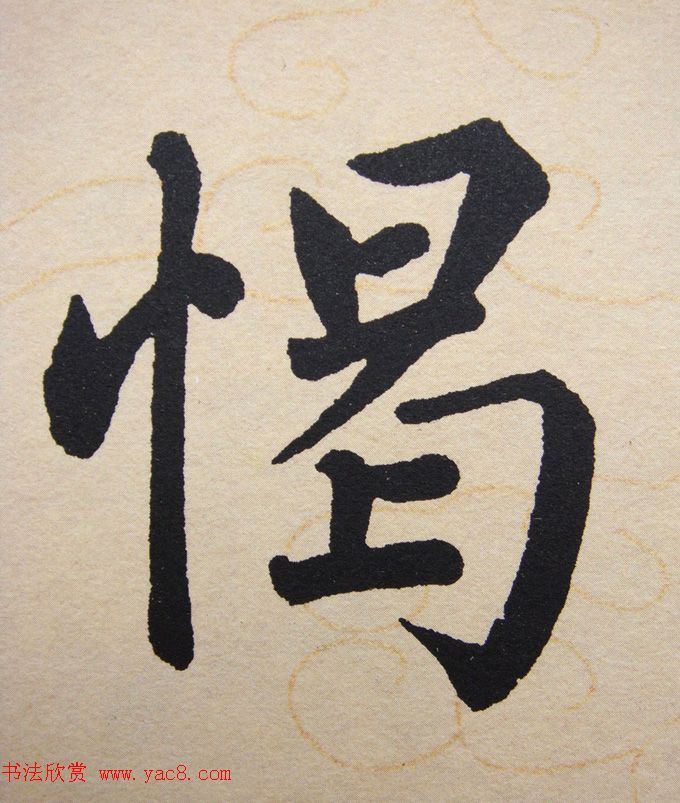 愒
书法欣赏 www.yac8.com